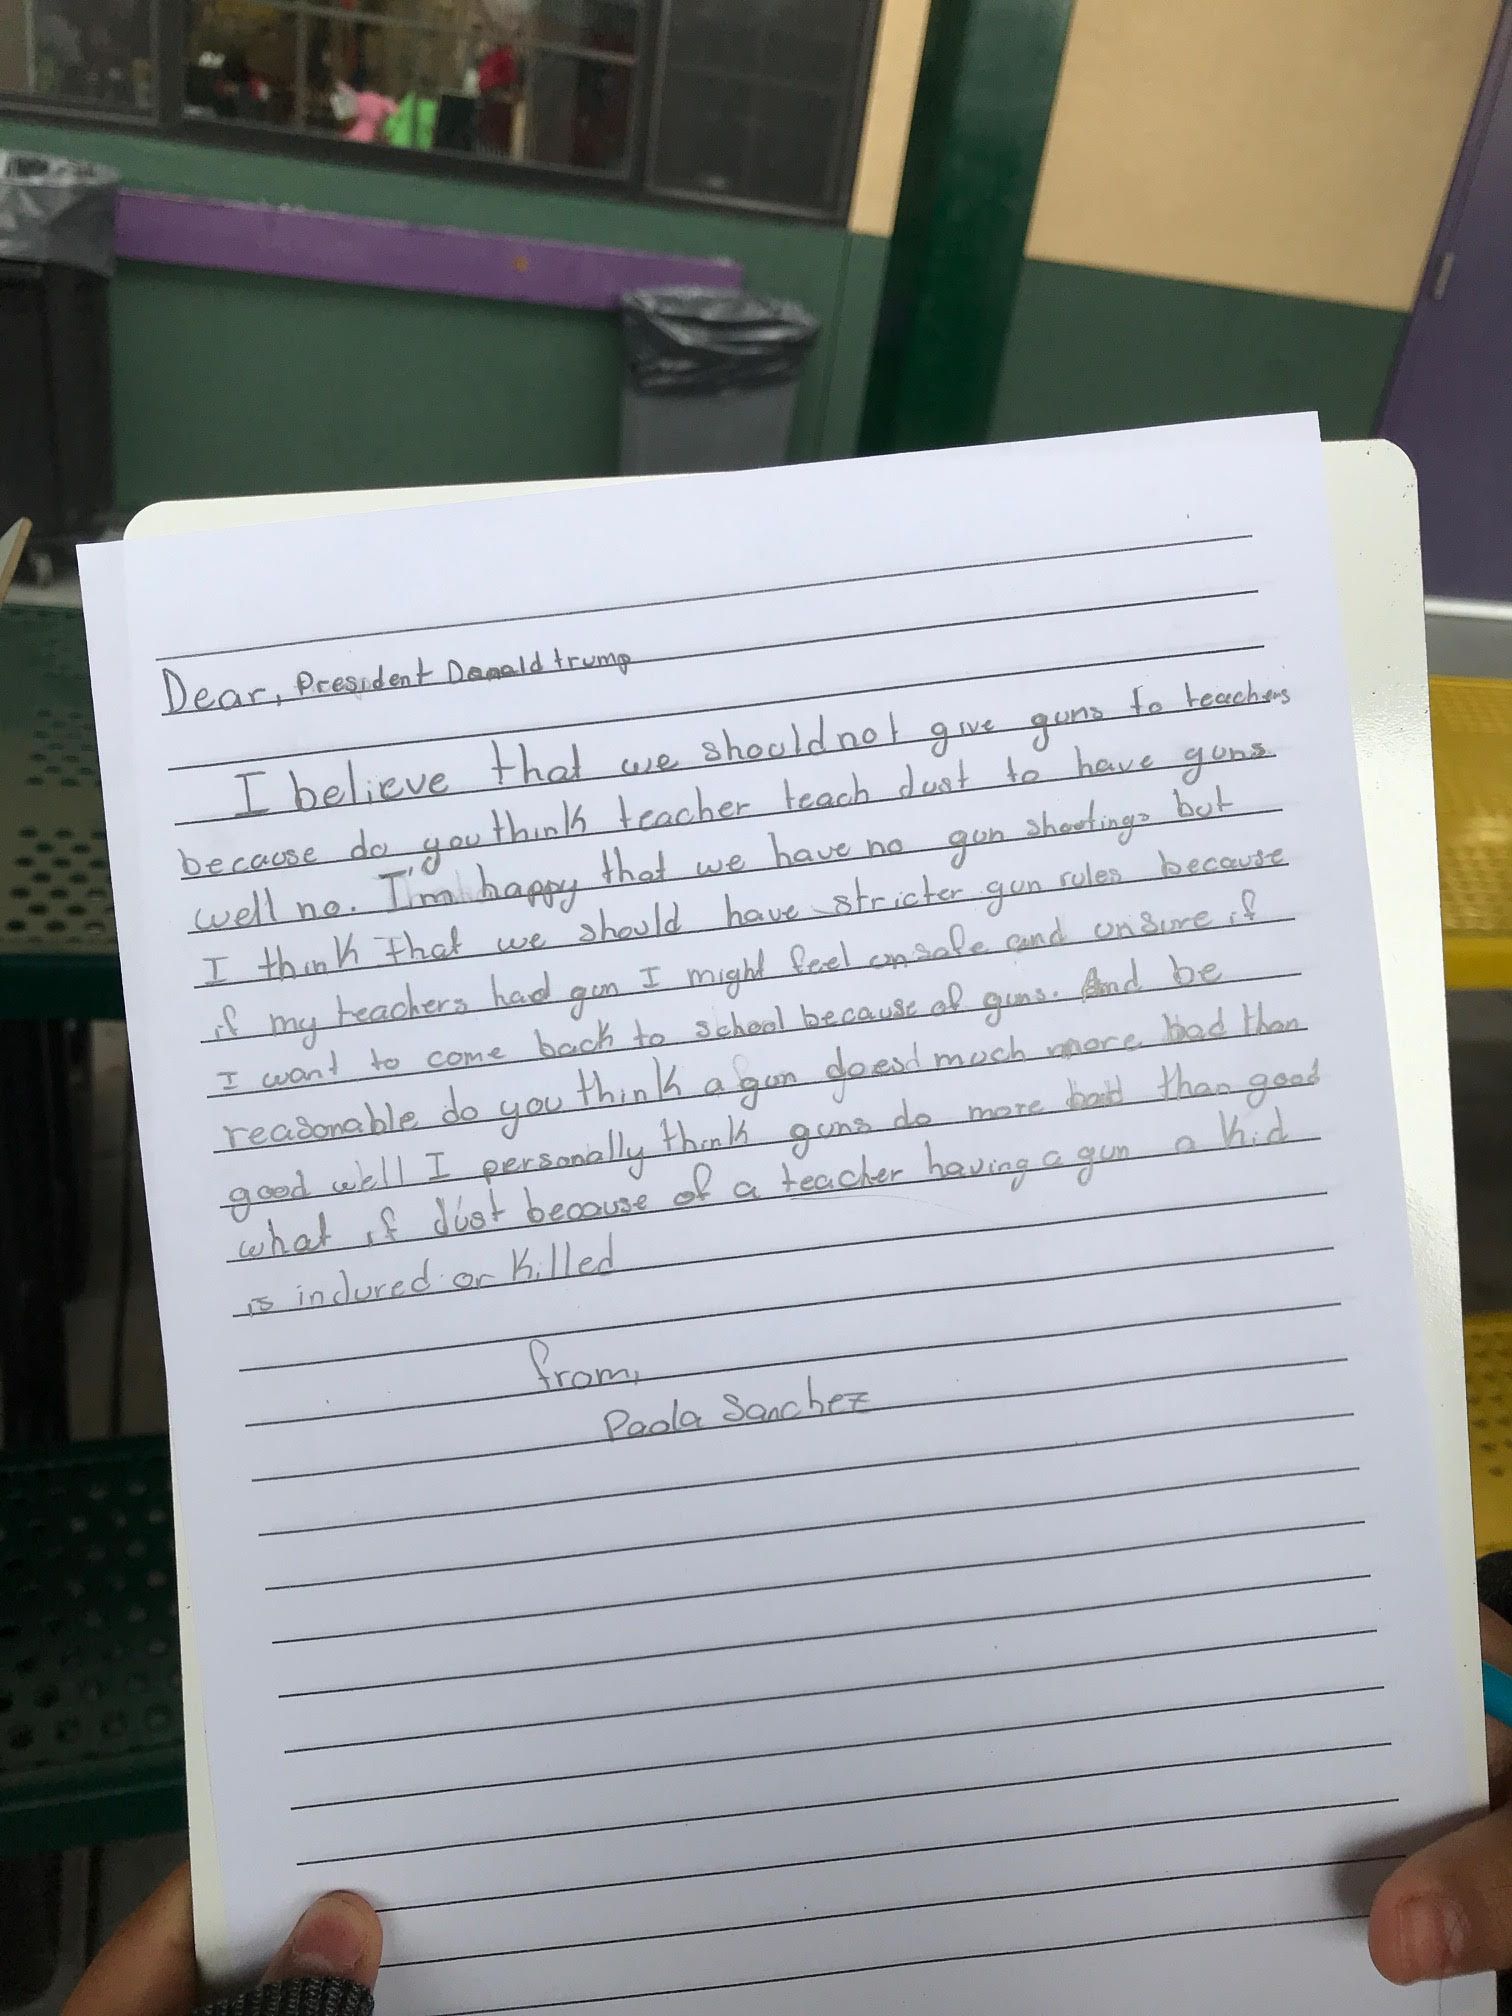 Dear, President Donald trump
I believe that we should not give guns to teachers
because do you think teacher teach dust to have guns
well no. I'm happy that we have no gun shootings but
I think that we should have stricter gun rules because
if my teachers had gun I might feel unsafe and unsure if
I want to come back to school because of guns. And be
reasonable do you think a gun doesd much more bad than
good well I personally think guns do more bad than good
what if dust because of a teacher having a gun a kid
is indured or killed
from,
Paola Sanchez